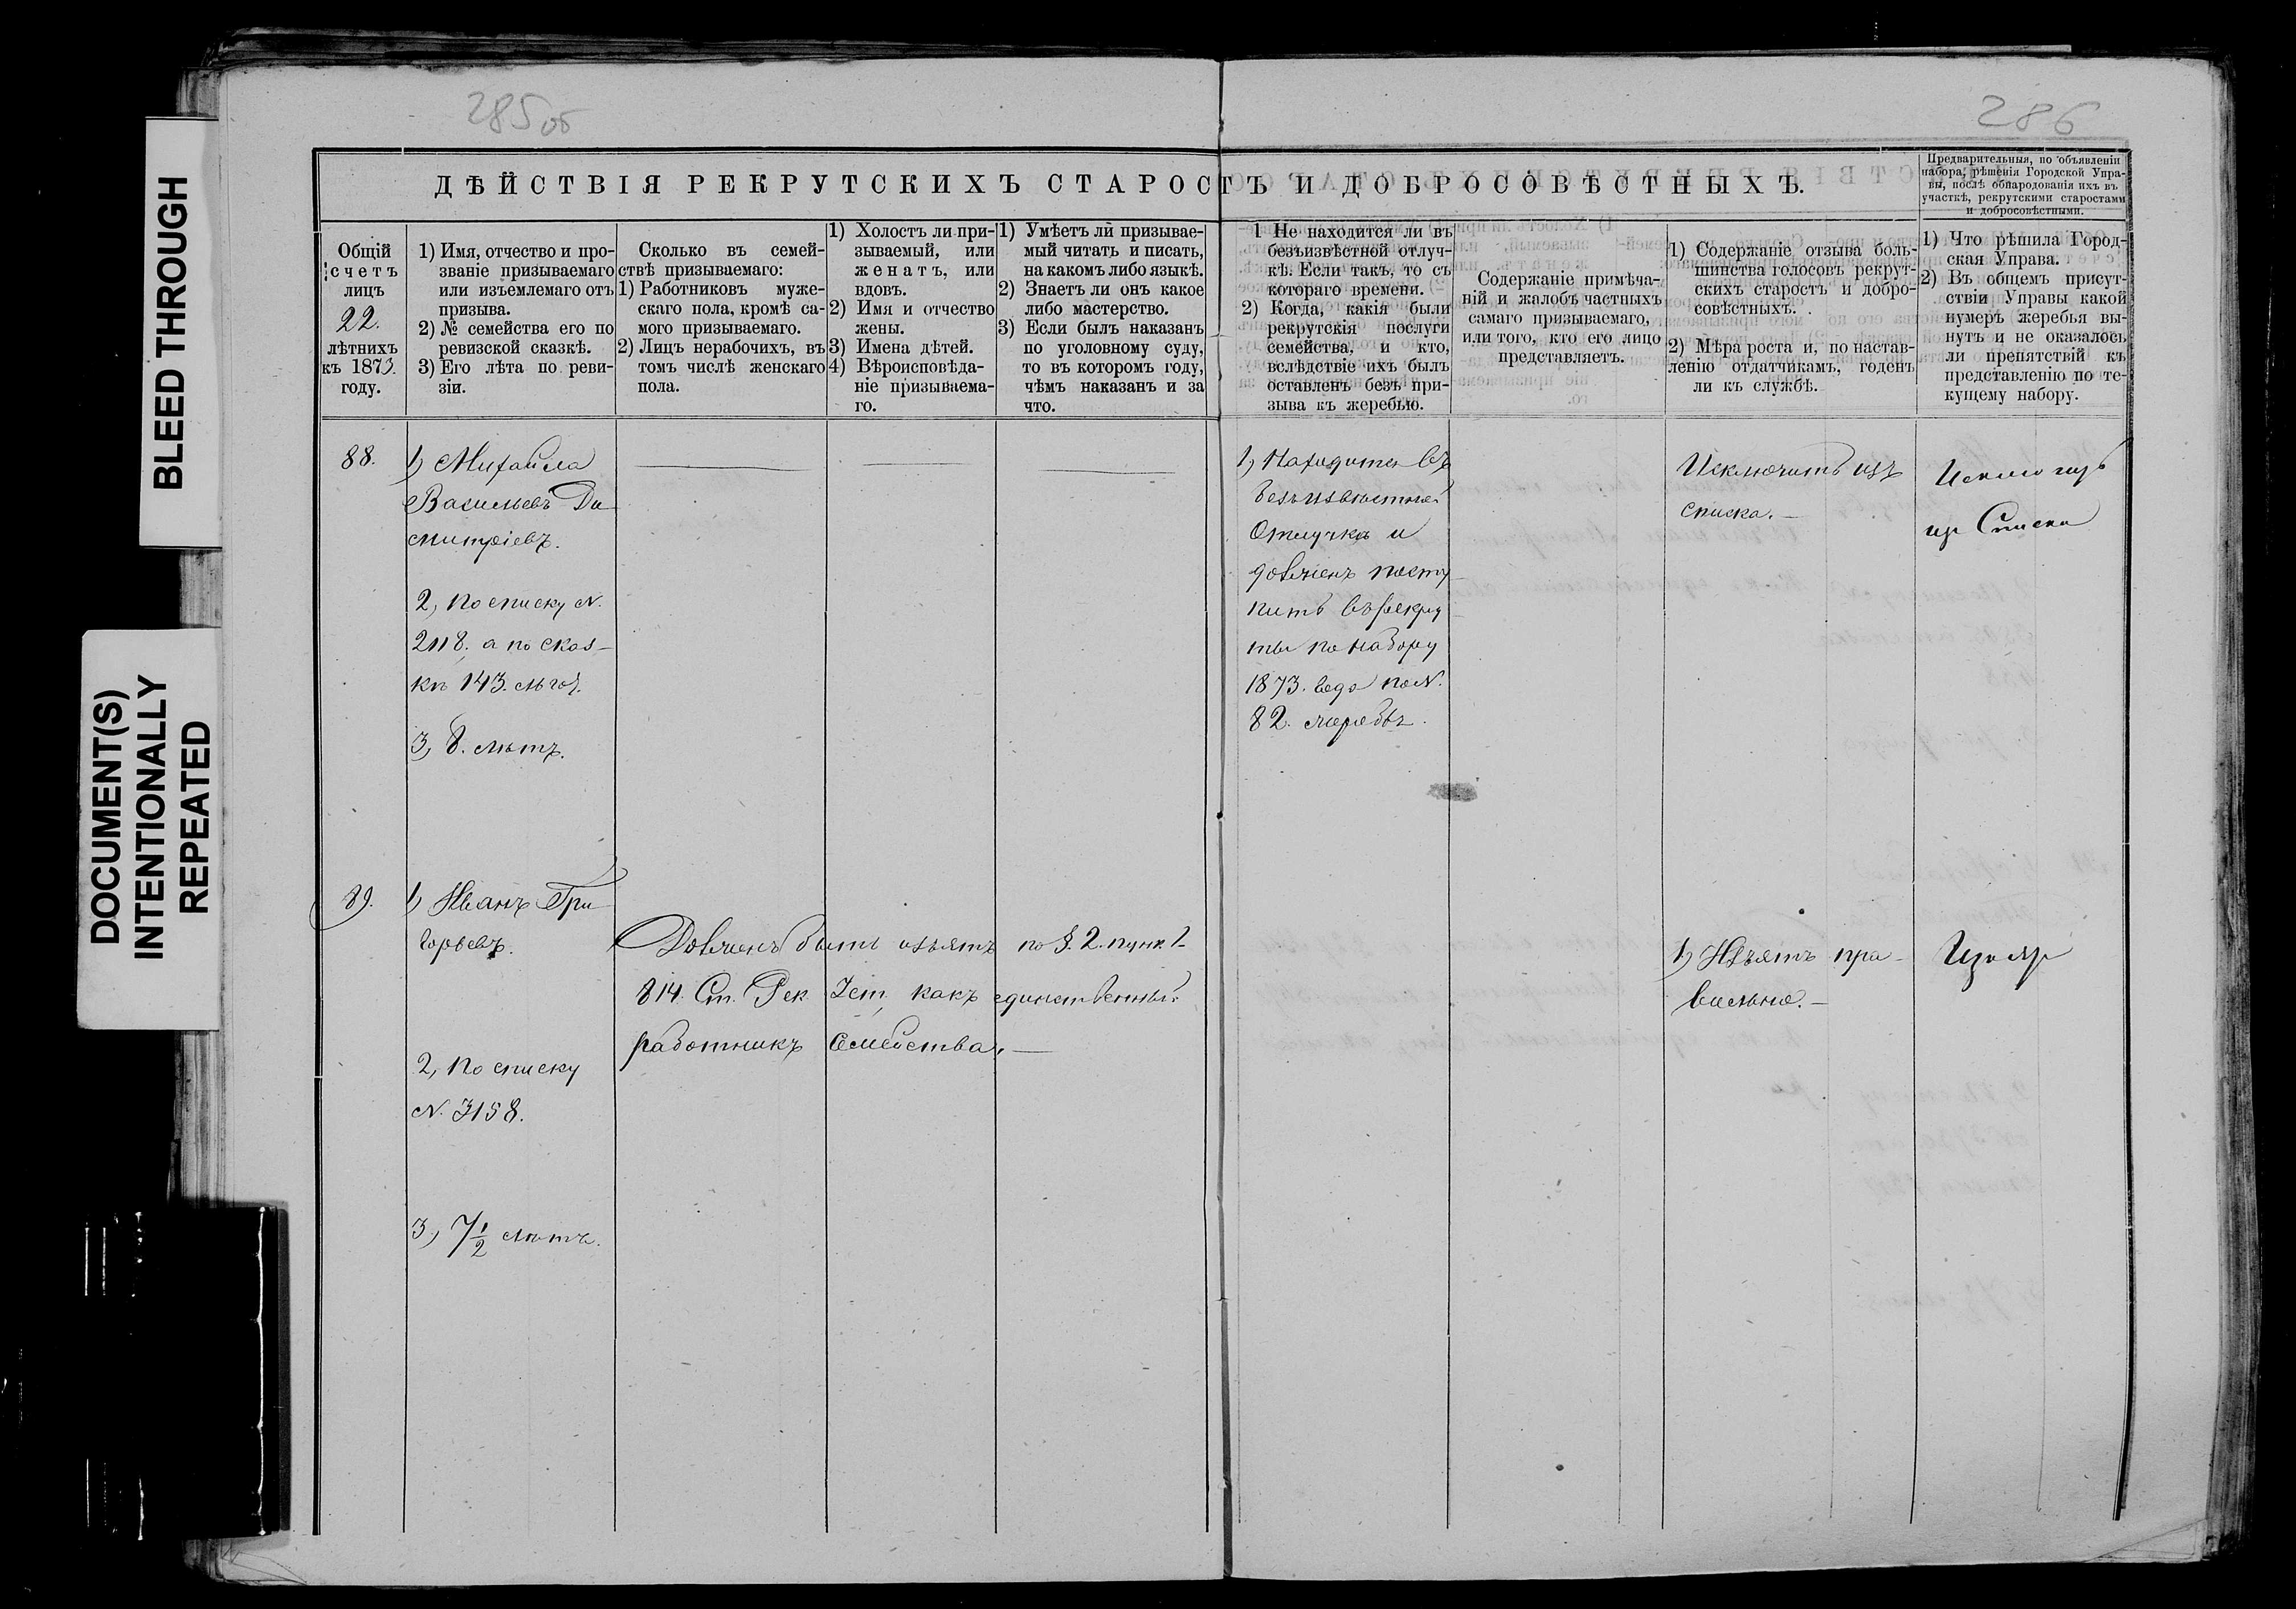 285 об
286
BLEED THROUGH
DOCUMENT(S)
INTENTIONALLY
REPEATED
ДѢЙСТВІЯ РЕКРУТСКИХЪ СТАРОСТЪ И ДОБРОСОВѢСТНЫХЪ.
Предварительныя, по объявленіи
набора, рѣшенія Городской Упра-
вы, послѣ обнародованія ихъ въ
участкѣ, рекрутскими старостами
и добросовѣстными.
Общій
счетъ
лицъ
22.
лѣтнихъ
къ 1873.
году.
1) Имя, отчество и про-
званіе призываемаго
или изъемлемаго отъ
призыва.
2) № семейства его по
ревизской сказкѣ.
3) Его лѣта по реви-
зіи.
Сколько въ семей-
ствѣ призываемаго:
1) Работниковъ муже-
скаго пола, кромѣ са-
мого призываемаго.
2) Лицъ нерабочихъ, въ
томъ числѣ женскаго
пола.
1) Холостъ ли при-
зываемый, или
женатъ, или
вдовъ.
2) Имя и отчество
жены.
3) Имена дѣтей.
4) Вѣроисповѣда-
ніе призываема-
го.
1) Умѣетъ ли призывае-
мый читать и писать,
на какомъ либо языкѣ.
2) Знаетъ ли онъ какое
либо мастерство.
3) Если былъ наказанъ
по уголовному суду,
то въ которомъ году,
чѣмъ наказанъ и за
что.
1 Не находится ли въ
безъизвѣстной отлуч-
кѣ. Если такъ, то съ
котораго времени.
2) Когда, какія были
рекрутскія послуги
семейства, и кто,
вслѣдствіе ихъ былъ
оставленъ безъ при-
зыва къ жеребью.
Содержаніе примѣча-
ній и жалобъ частныхъ
самаго призываемаго,
или того, кто его лицо
представляетъ.
1) Содержаніе отзыва боль-
шинства голосовъ рекрут-
скихъ старостъ и добро-
совѣстныхъ.
2) Мѣра роста и, по настав-
ленію отдатчикамъ, годенъ
ли къ службѣ.
1) Что рѣшила Город-
ская Управа.
2) Въ общемъ присут-
ствіи Управы какой
нумеръ жеребья вы-
нутъ и не оказалось
ли препятствій къ
представленію по те-
кущему набору.
88.
1) Михайла
Васильевъ Ди-
митріевъ.
2, по списку N.
2118. а по сказ-
кѣ 143.
3, 8. лѣтъ.
1, Находится въ
безъизвѣстной
Отлучкѣ и
долженъ посту-
пить въ рекру
ты по набору
1873. года по N.
82. жеребья.
Исключить изъ
списка. —
из Списка
89.
1, Иванъ Гри-
горьевъ.
2, по списку
N. 3158.
3, 7 1/2 лѣтъ.
Долженъ быть изъятъ по §. 2. пункт
814. Ст. Рек Уст, какъ единственный
работникъ семейства. —
1, Изъятъ пра-
вильно. —